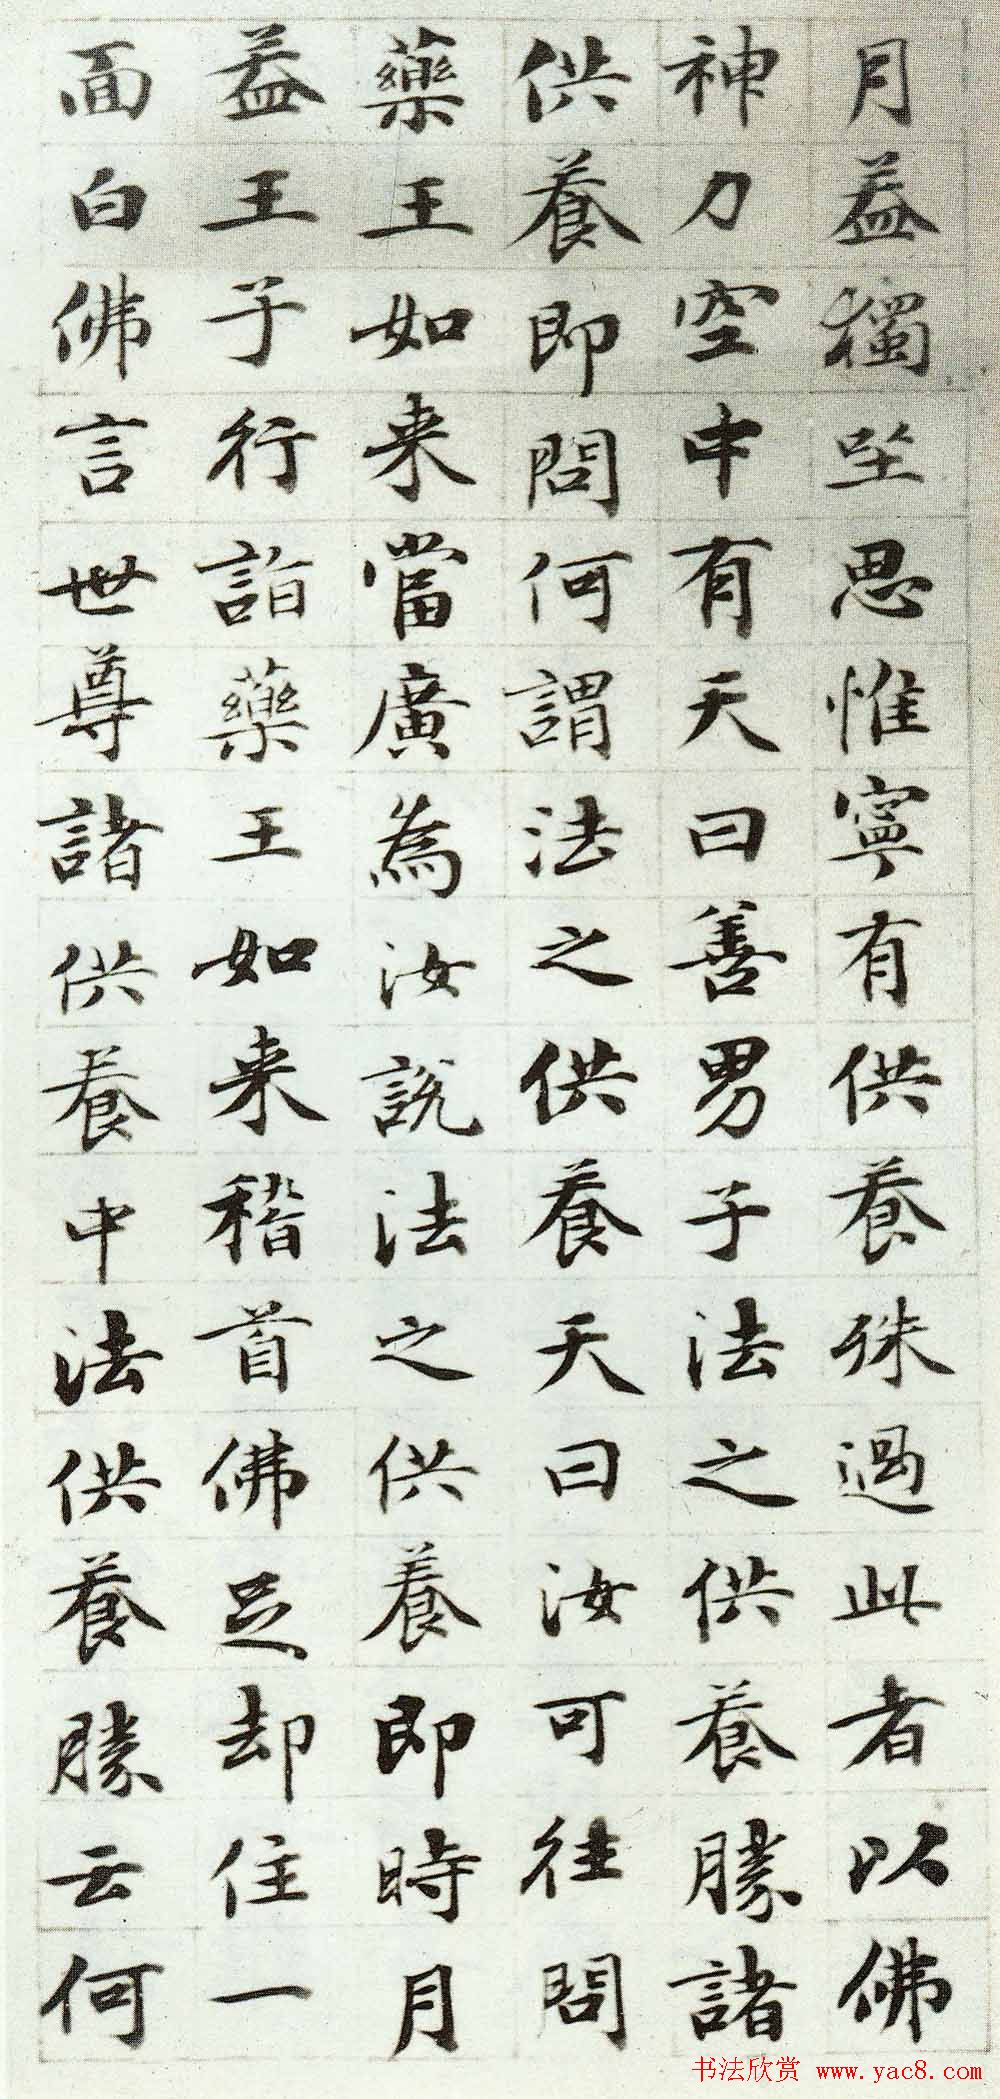 月盖獨坐思惟寧有供養殊過此者以佛
神力空中有天曰善男子法之供養勝諸
供養即問何謂法之供養天曰汝可往問
藥王如来當廣為汝說法之供養即時月
盖王子行詣藥王如来稽首佛足却住一
面白佛言世尊諸供養中法供養勝云何
书法欣赏 www.yac8.com